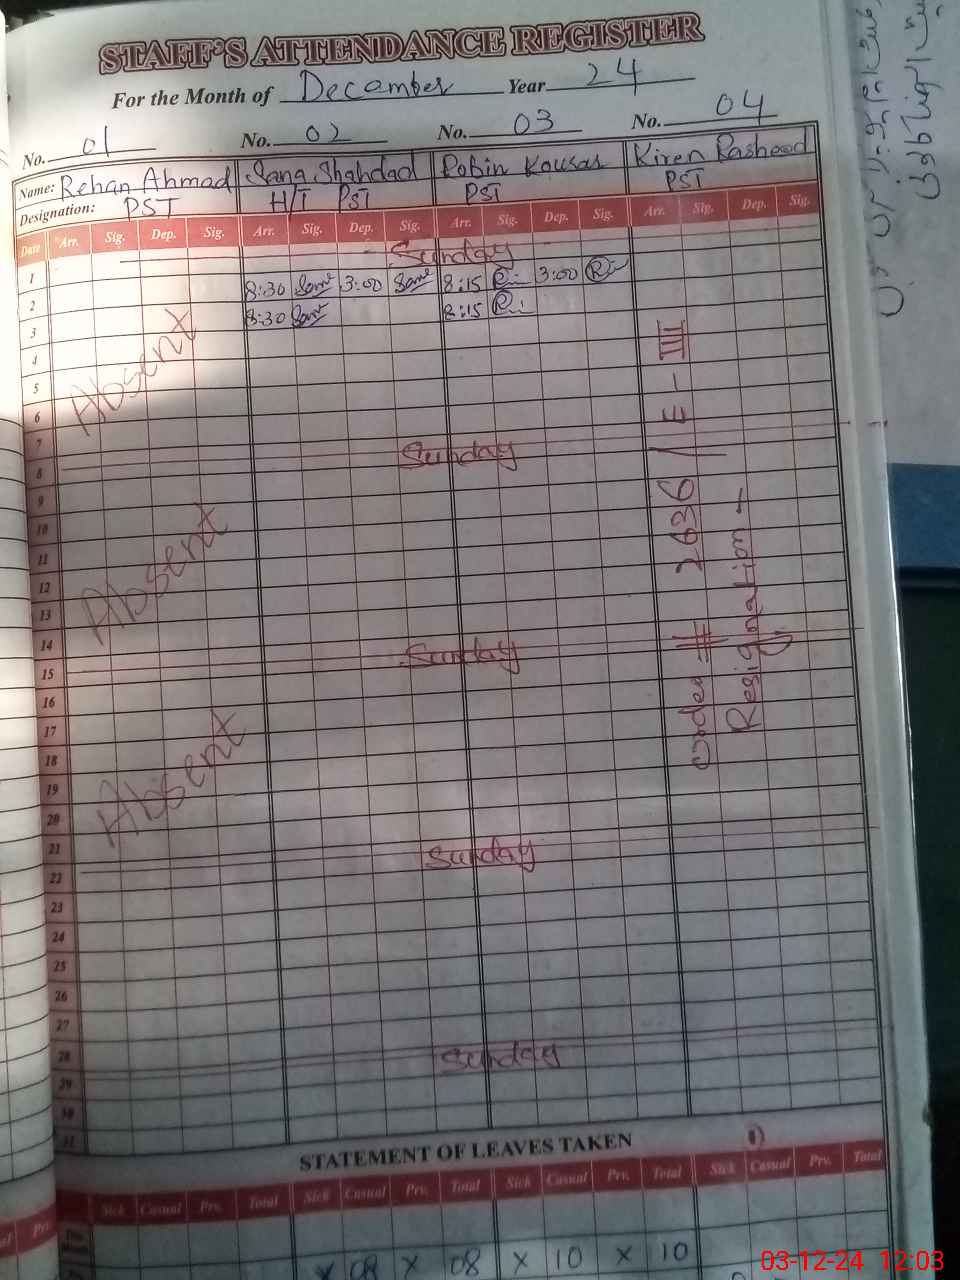 STAFF'S ATTENDANCE REGISTER
For the Month of December Year 24
No. 01 No. 02 No. 03 No. 04
Name: Rehan Ahmad Sana Shahdad Robin Kousar Kiren Rasheed
Designation: PST H/T PST PST PST
Date Arr. Sig. Dep. Sig. Arr. Sig. Dep. Sig. Arr. Sig. Dep. Sig. Arr. Sig. Dep. Sig.
1 Sunday
2 8:30 3:00 8:15 3:00
3 8:30 8:15
4
5
6
7
8 Sunday
9
10
11
12
13
14
15 Sunday
16
17
18
19
20
21
22 Sunday
23
24
25
26
27
28
29 Sunday
30
31
Absent
Absent
Absent
order # 2636 / E - III
Resignation -
STATEMENT OF LEAVES TAKEN
Sick Casual Prv. Total Sick Casual Prv. Total Sick Casual Prv. Total Sick Casual Prv. Total
x 08 x 08 x 10 x 10
03-12-24 12:03